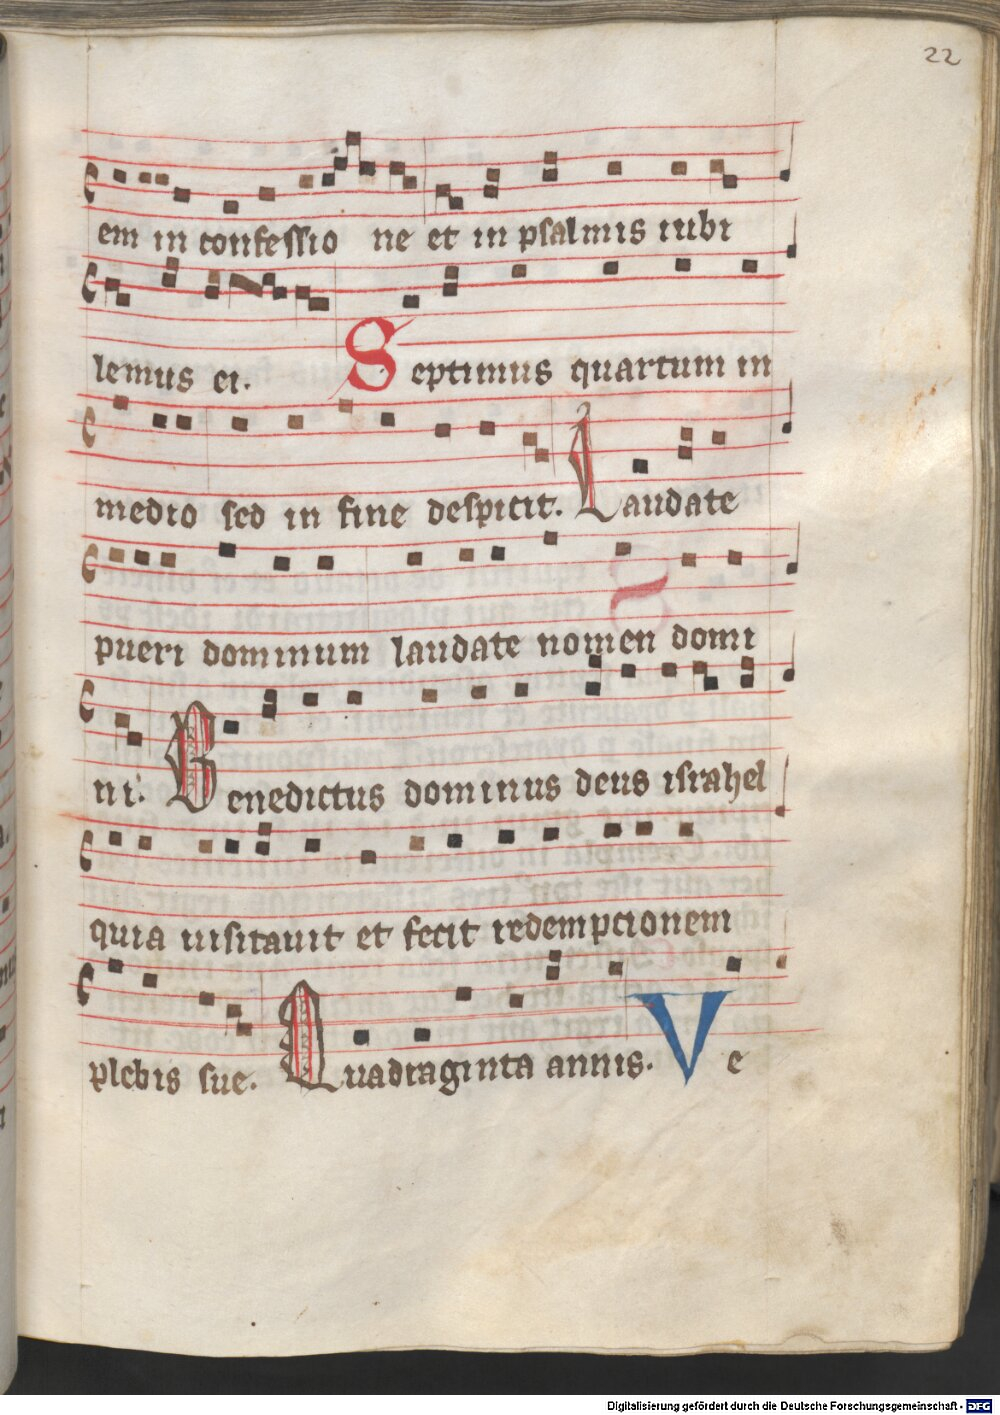 22
em in confessio ne et in psalmis iubi
lemus ei. Septimus quartum in
medio sed in fine despicit. Laudate
pueri dominum laudate nomen domi
ni. Benedictus dominus deus israhel
quia uisitauit et fecit redempcionem
plebis sue. Quadraginta annis. Ve
Digitalisierung gefördert durch die Deutsche Forschungsgemeinschaft - DFG